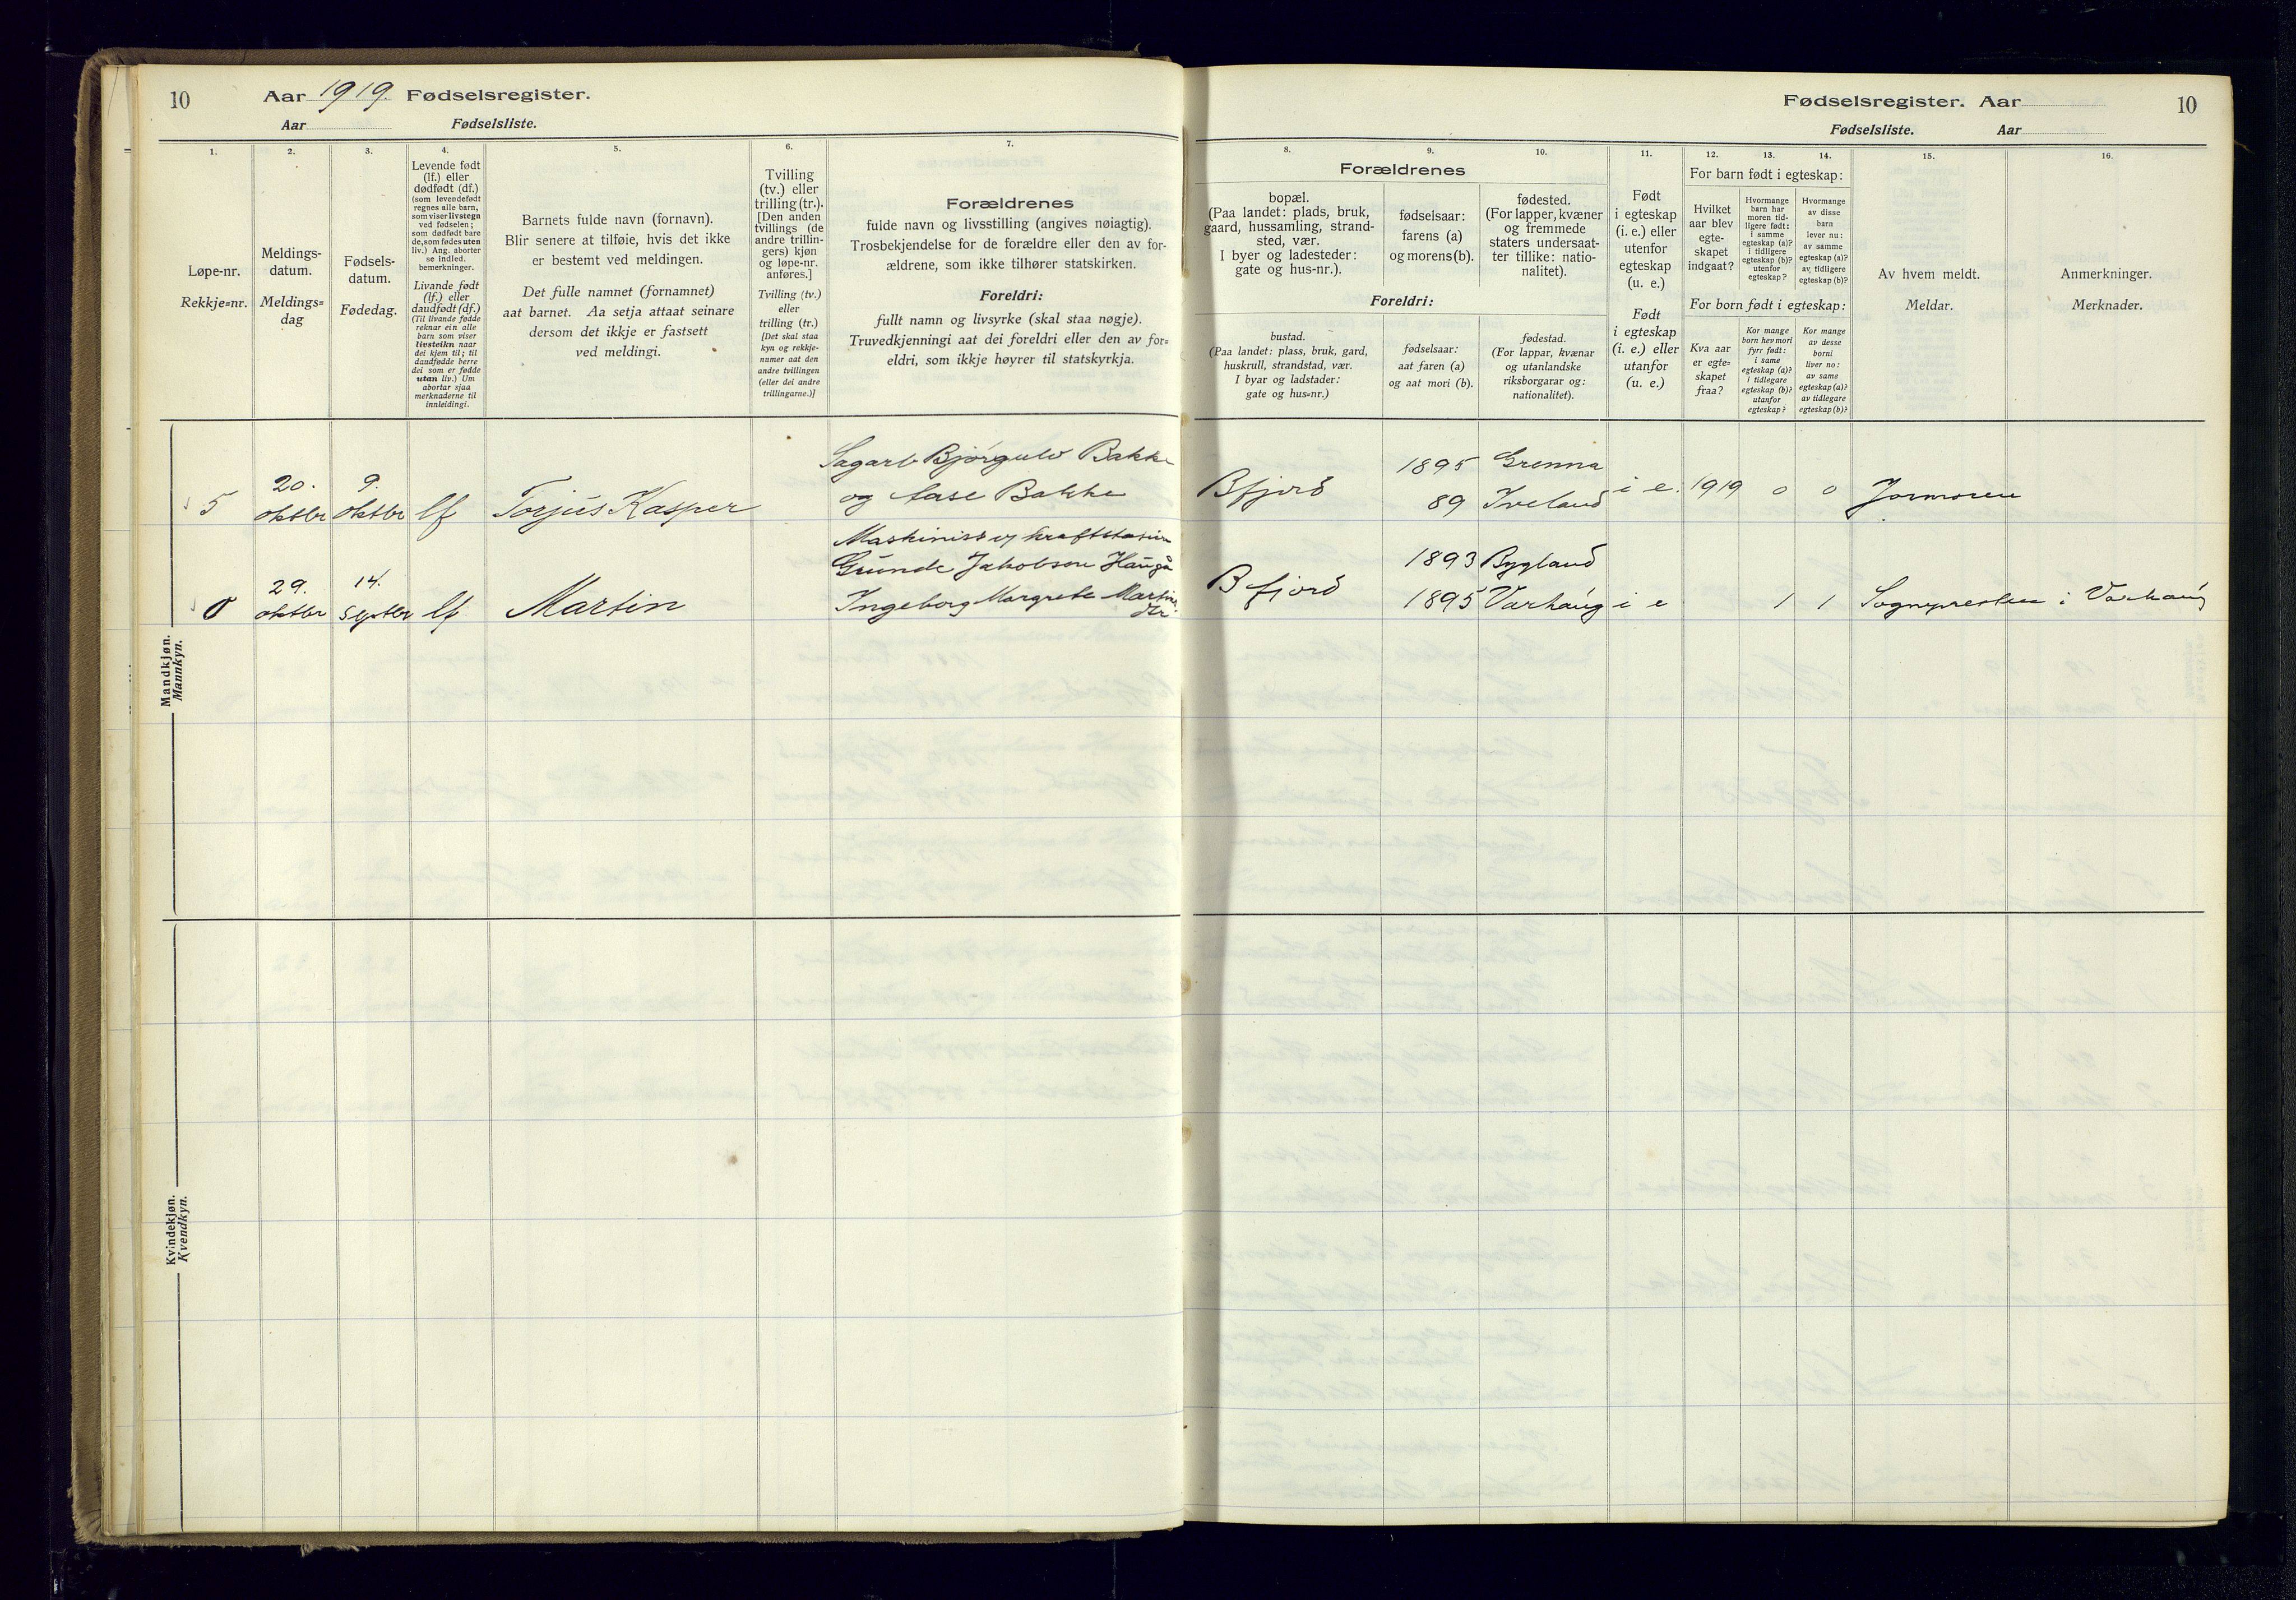 10 Aar 1919. Fødselsregister.
Aar Fødselsliste.
1. 2. 3. 4. 5. 6. 7.
Løpe-nr.
Rekkje=nr.
Meldings-
datum.
Meldings=
dag
Fødsels-
datum.
Fødedag.
Levende født
(lf.) eller
dødfødt (df.)
(som levendefødt
regnes alle barn,
som viser livstegn
ved fødselen;
som dødfødt bare
de, som fødes uten
liv.) Ang. aborter
se indled.
bemerkninger.
Livande født
(lf.) eller
daudfødt (df.)
(Til livande fødde
reknar ein alle
barn som viser
livsteikn naar
dei kjem til; til
daudfødde berre
dei som er fødde
utan liv.) Um
abortar sjaa
merknaderne til
innleidingi.
Barnets fulde navn (fornavn).
Blir senere at tilføie, hvis det ikke
er bestemt ved meldingen.
Det fulle namnet (fornamnet)
aat barnet. Aa setja attaat seinare
dersom det ikkje er fastsett
ved meldingi.
Tvilling
(tv.) eller
trilling (tr.).
[Den anden
tvillings (de
andre trillin-
gers) kjøn
og løpe-nr.
anføres.]
Tvilling (tv.)
eller
trilling (tr.)
[Det skal staa
kyn og rekkje-
numer aat den
andre tvillingen
(eller dei andre
trillingarne.)]
Forældrenes
fulde navn og livsstilling (angives nøiagtig).
Trosbekjendelse for de forældre eller den av for-
ældrene, som ikke tilhører statskirken.
Foreldri:
fullt namn og livsyrke (skal staa nøgje).
Truvedkjenningi aat dei foreldri eller den av for=
eldri, som ikkje høyrer til statskyrkja.
Mandkjøn.
Mannkyn.
5 20. oktbr 9. oktbr lf Torjus Kasper
Sagarb Bjørgulv Bakke
og Aase Bakke
0 29. oktbr 14. septbr lf Martin
Maskinist og kraftstasion
Gunde Jakobsen
Ingeborg Margrete
Kvindekjøn.
Kvendkyn.
Fødselsregister. Aar 10
Fødselsliste. Aar
8. 9. 10. 11. 12. 13. 14. 15. 16.
Forældrenes
bopæl.
(Paa landet: plads, bruk,
gaard, hussamling, strand-
sted, vær.
I byer og ladesteder:
gate og hus-nr.).
fødselsaar:
farens (a)
og morens (b).
fødested.
(For lapper, kvæner
og fremmede
staters undersaat-
ter tillike: natio-
nalitet).
Foreldri:
bustad.
(Paa landet: plass, bruk, gard,
huskrull, strandstad, vær.
I byar og ladstader:
gate og hus=nr.)
fødselsaar:
aat faren (a)
og aat mori (b).
fødestad.
(For lappar, kvænar
og utanlandske
riksborgarar og:
nationalitet).
Født
i egteskap
(i. e.) eller
utenfor
egteskap
(u. e.)
Født
i egteskap
(i. e.) eller
utanfor
(u. e.)
For barn født i egteskap:
Hvilket
aar blev
egte-
skapet
indgaat?
Hvormange
barn har
moren tid-
ligere født:
i samme
egteskap (a)?
i tidligere
egteskap (b)?
utenfor
egteskap?
Hvormange
av disse
barn
lever nu:
av samme
egteskap (a)?
av tidligere
egteskap (b)?
For born født i egteskap:
Kva aar
er egte=
skapet
fraa?
Kor mange
born hev mori
fyrr født:
i same
egteskap (a)?
i tidlegare
egteskap (b)?
utanfor
egteskap?
Kor mange
av desse
borni
liver no:
av same
egteskap (a)?
av tidlegare
egteskap (b)?
Av hvem meldt.
Meldar.
Anmerkninger.
Merknader.
Bfjord 1895 Grenna
89 Iveland i e. 1919 0 0 Jormoren
Bfjord 1893 Bygland
1895 Varhaug i e 1 1 Sognepresten i Varhaug